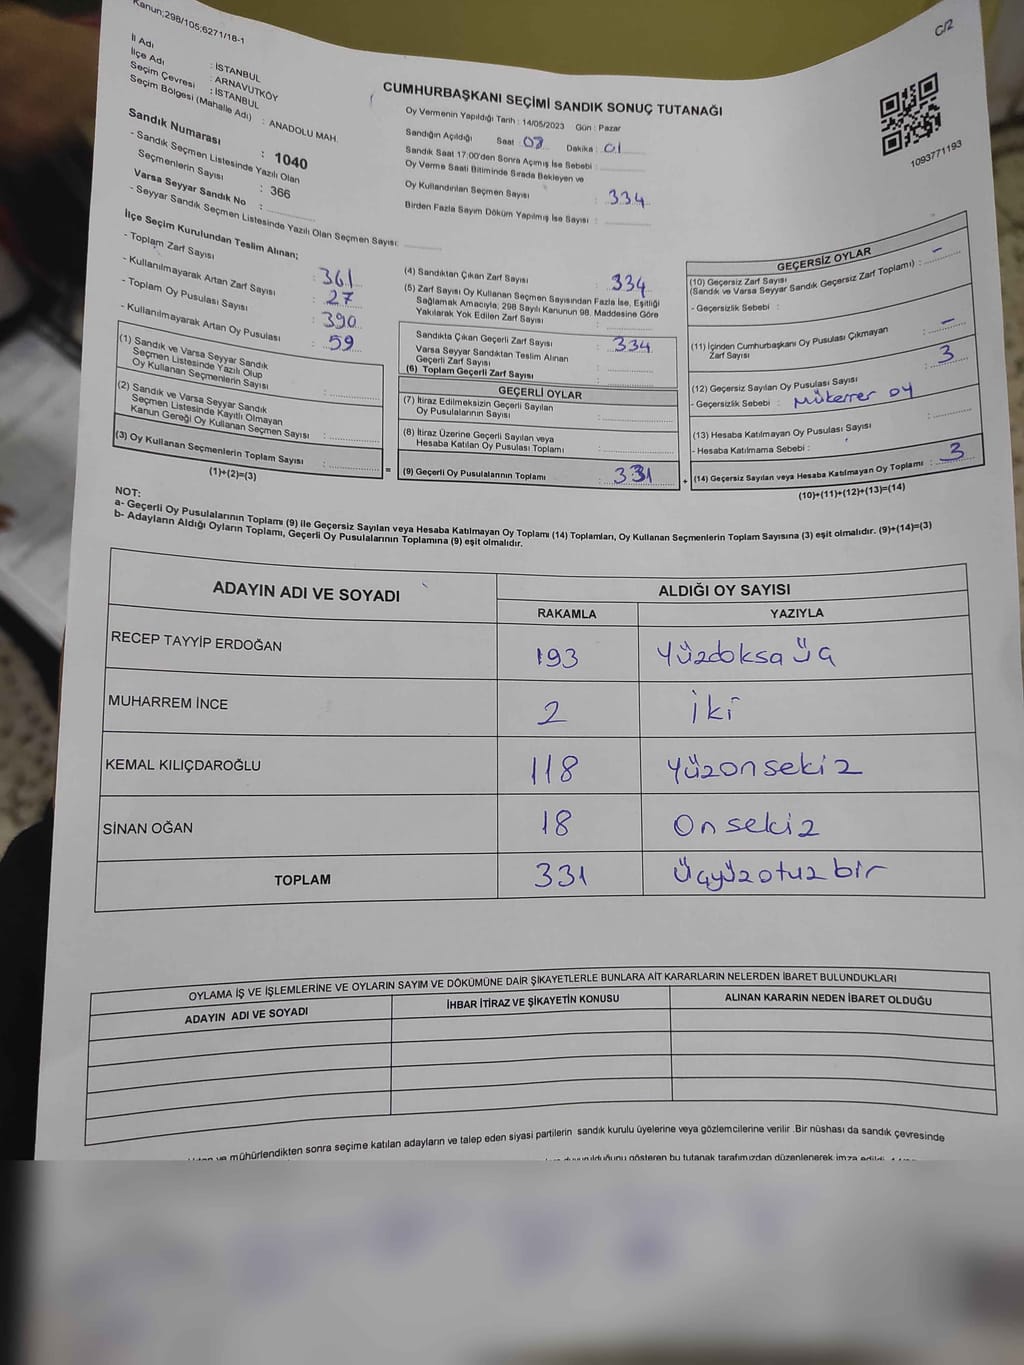 Kanun;298/105;6271/18-1
C/2
İl Adı : İSTANBUL
İlçe Adı : ARNAVUTKÖY
Seçim Çevresi : İSTANBUL
Seçim Bölgesi (Mahalle Adı) : ANADOLU MAH.
Sandık Numarası : 1040
- Sandık Seçmen Listesinde Yazılı Olan
Seçmenlerin Sayısı : 366
Varsa Seyyar Sandık No :
- Seyyar Sandık Seçmen Listesinde Yazılı Olan Seçmen Sayısı:
CUMHURBAŞKANI SEÇİMİ SANDIK SONUÇ TUTANAĞI
Oy Vermenin Yapıldığı Tarih : 14/05/2023 Gün : Pazar
Sandığın Açıldığı Saat 08 Dakika : 01
Sandık Saat 17:00'den Sonra Açımış İse Sebebi :
Oy Verme Saati Bitiminde Sırada Bekleyen ve
Oy Kullandırılan Seçmen Sayısı : 334
Birden Fazla Sayım Döküm Yapılmış İse Sayısı :
1093771193
İlçe Seçim Kurulundan Teslim Alınan;
- Toplam Zarf Sayısı : 361
- Kullanılmayarak Artan Zarf Sayısı : 27
- Toplam Oy Pusulası Sayısı : 390
- Kullanılmayarak Artan Oy Pusulası : 59
(1) Sandık ve Varsa Seyyar Sandık
Seçmen Listesinde Yazılı Olup
Oy Kullanan Seçmenlerin Sayısı :
(2) Sandık ve Varsa Seyyar Sandık
Seçmen Listesinde Kayıtlı Olmayan
Kanun Gereği Oy Kullanan Seçmen Sayısı :
(3) Oy Kullanan Seçmenlerin Toplam Sayısı :
(1)+(2)=(3)
=
(4) Sandıktan Çıkan Zarf Sayısı : 334
(5) Zarf Sayısı Oy Kullanan Seçmen Sayısından Fazla İse, Eşitliği
Sağlamak Amacıyla; 298 Sayılı Kanunun 98. Maddesine Göre
Yakılarak Yok Edilen Zarf Sayısı :
Sandıkta Çıkan Geçerli Zarf Sayısı : 334
Varsa Seyyar Sandıktan Teslim Alınan
Geçerli Zarf Sayısı :
(6) Toplam Geçerli Zarf Sayısı :
GEÇERLİ OYLAR
(7) İtiraz Edilmeksizin Geçerli Sayılan
Oy Pusulalarının Sayısı :
(8) İtiraz Üzerine Geçerli Sayılan veya
Hesaba Katılan Oy Pusulası Toplamı :
(9) Geçerli Oy Pusulalarının Toplamı : 331
+
GEÇERSİZ OYLAR
(10) Geçersiz Zarf Sayısı
(Sandık ve Varsa Seyyar Sandık Geçersiz Zarf Toplamı) : -
- Geçersizlik Sebebi :
(11) İçinden Cumhurbaşkanı Oy Pusulası Çıkmayan
Zarf Sayısı : -
(12) Geçersiz Sayılan Oy Pusulası Sayısı : 3
- Geçersizlik Sebebi : Mükerrer oy
(13) Hesaba Katılmayan Oy Pusulası Sayısı :
- Hesaba Katılmama Sebebi :
(14) Geçersiz Sayılan veya Hesaba Katılmayan Oy Toplamı : 3
(10)+(11)+(12)+(13)=(14)
NOT:
a- Geçerli Oy Pusulalarının Toplamı (9) ile Geçersiz Sayılan veya Hesaba Katılmayan Oy Toplamı (14) Toplamları, Oy Kullanan Seçmenlerin Toplam Sayısına (3) eşit olmalıdır. (9)+(14)=(3)
b- Adayların Aldığı Oyların Toplamı, Geçerli Oy Pusulalarının Toplamına (9) eşit olmalıdır.
ADAYIN ADI VE SOYADI
ALDIĞI OY SAYISI
RAKAMLA YAZIYLA
RECEP TAYYİP ERDOĞAN 193 Yüzdoksa üç
MUHARREM İNCE 2 iki
KEMAL KILIÇDAROĞLU 118 Yüzonsekiz
SİNAN OĞAN 18 Onsekiz
TOPLAM 331 Üçyüzotuzbir
OYLAMA İŞ VE İŞLEMLERİNE VE OYLARIN SAYIM VE DÖKÜMÜNE DAİR ŞİKAYETLERLE BUNLARA AİT KARARLARIN NELERDEN İBARET BULUNDUKLARI
ADAYIN ADI VE SOYADI İHBAR İTİRAZ VE ŞİKAYETİN KONUSU ALINAN KARARIN NEDEN İBARET OLDUĞU
ve mühürlendikten sonra seçime katılan adayların ve talep eden siyasi partilerin sandık kurulu üyelerine veya gözlemcilerine verilir .Bir nüshası da sandık çevresinde
duyurulduğunu gösteren bu tutanak tarafımızdan düzenlenerek imza edildi.